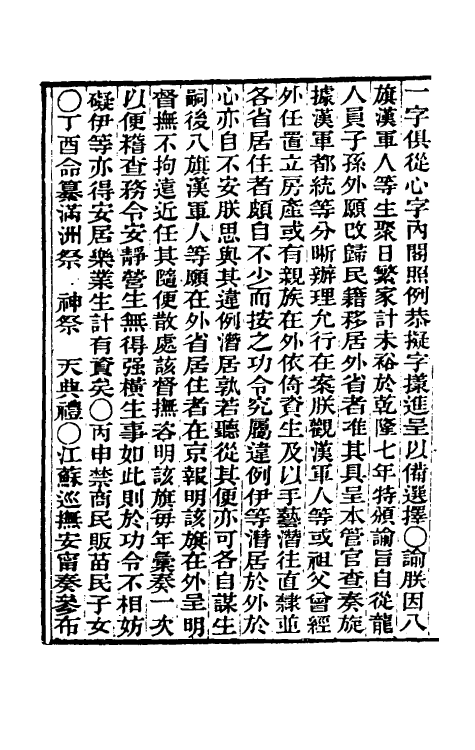 一字俱從心字內閣照例恭擬字樣進呈以備選擇○諭朕因八
旗漢軍人等生聚日繁家計未裕於乾隆七年特頒諭旨自從龍
人員子孫外願改歸民籍移居外省者准其具呈本管官查奏旋
據漢軍都統等分晰辦理允行在案朕觀漢軍人等或祖父曾經
外任置立房產或有親族在外依倚資生及以手藝潛往直隸並
各省居住者頗自不少而按之功令究屬違例伊等潛居於外於
心亦自不安朕思與其違例潛居孰若聽從其便亦可各自謀生
嗣後八旗漢軍人等願在外省居住者在京報明該旗在外呈明
督撫不拘遠近任其隨便散處該督撫咨明該旗每年彙奏一次
以便稽查務令安靜營生無得强橫生事如此則於功令不相妨
礙伊等亦得安居樂業生計有資矣○丙申禁商民販苗民子女
○丁酉命纂滿洲祭 神祭 天典禮○江蘇巡撫安甯奏參布